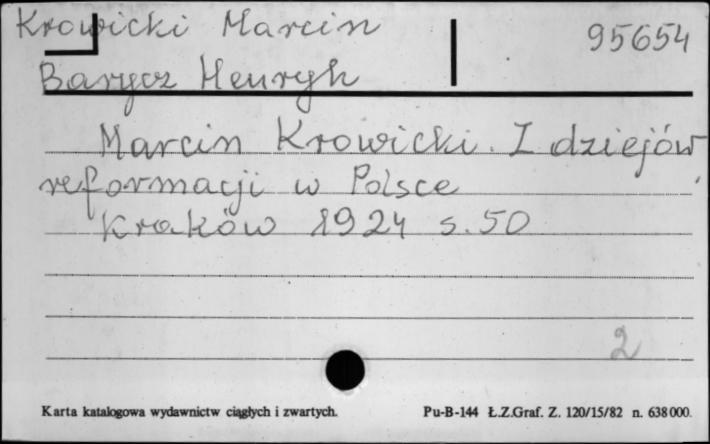 Krowicki Marcin
95654
Barycz Henryk
Marcin Krowicki. Z dziejów
reformacji w Polsce
Kraków 1924 s. 50
2
Karta katalogowa wydawnictw ciągłych i zwartych. Pu-B-144 Ł.Z.Graf. Z. 120/15/82 n. 638000.